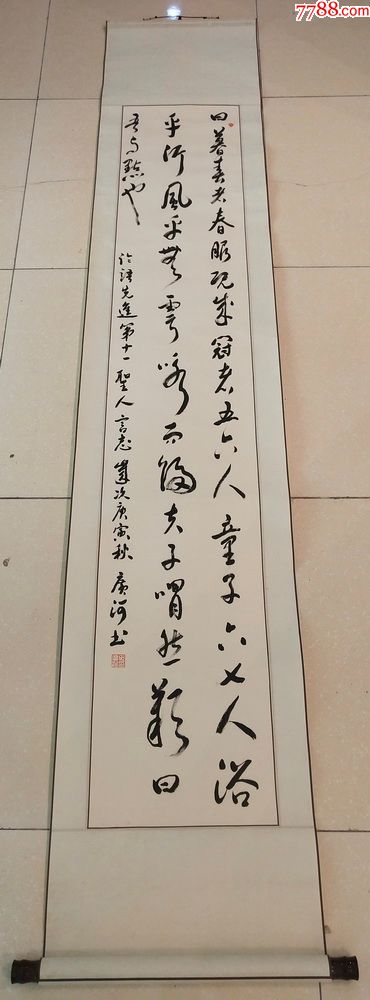 7788.com
曰暮春者春服既成冠者五六人童子六七人浴
乎沂風乎舞雩咏而歸夫子喟然歎曰
吾与點也
论語先進第十一聖人言志歲次庚寅秋廣河书